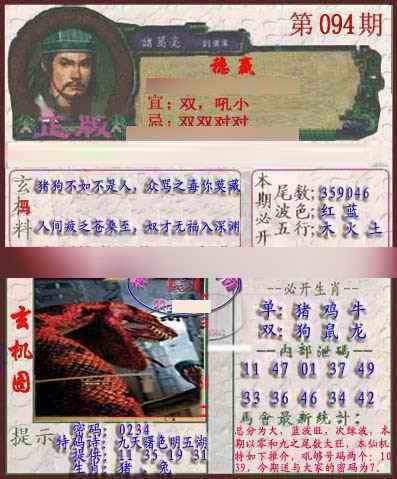 第094期
諸葛亮
德赢
宜：双，吼小
忌：双双对对
正版
玄机料
猪狗不如不是人，众骂之毒你莫藏
人间疲之苍桑至，奴才无福入深渊
本期必开
尾数：359046
波色：红 蓝
五行：木 火 土
必开生肖
单：猪 鸡 牛
双：狗 鼠 龙
内部泄码
11 47 01 37 49
33 36 46 34 42
玄机图
提示
密码：0234
特码诗：九天曙色明五湖
提供：11 35 19 31
生肖：猪、兔
马會最新统计：
总分为大，蓝波旺，次绿波，本
期以零和九之尾数大旺，本仙机
特如下推介，吼够号码两个：10
39，今期送与大家的密码为7．